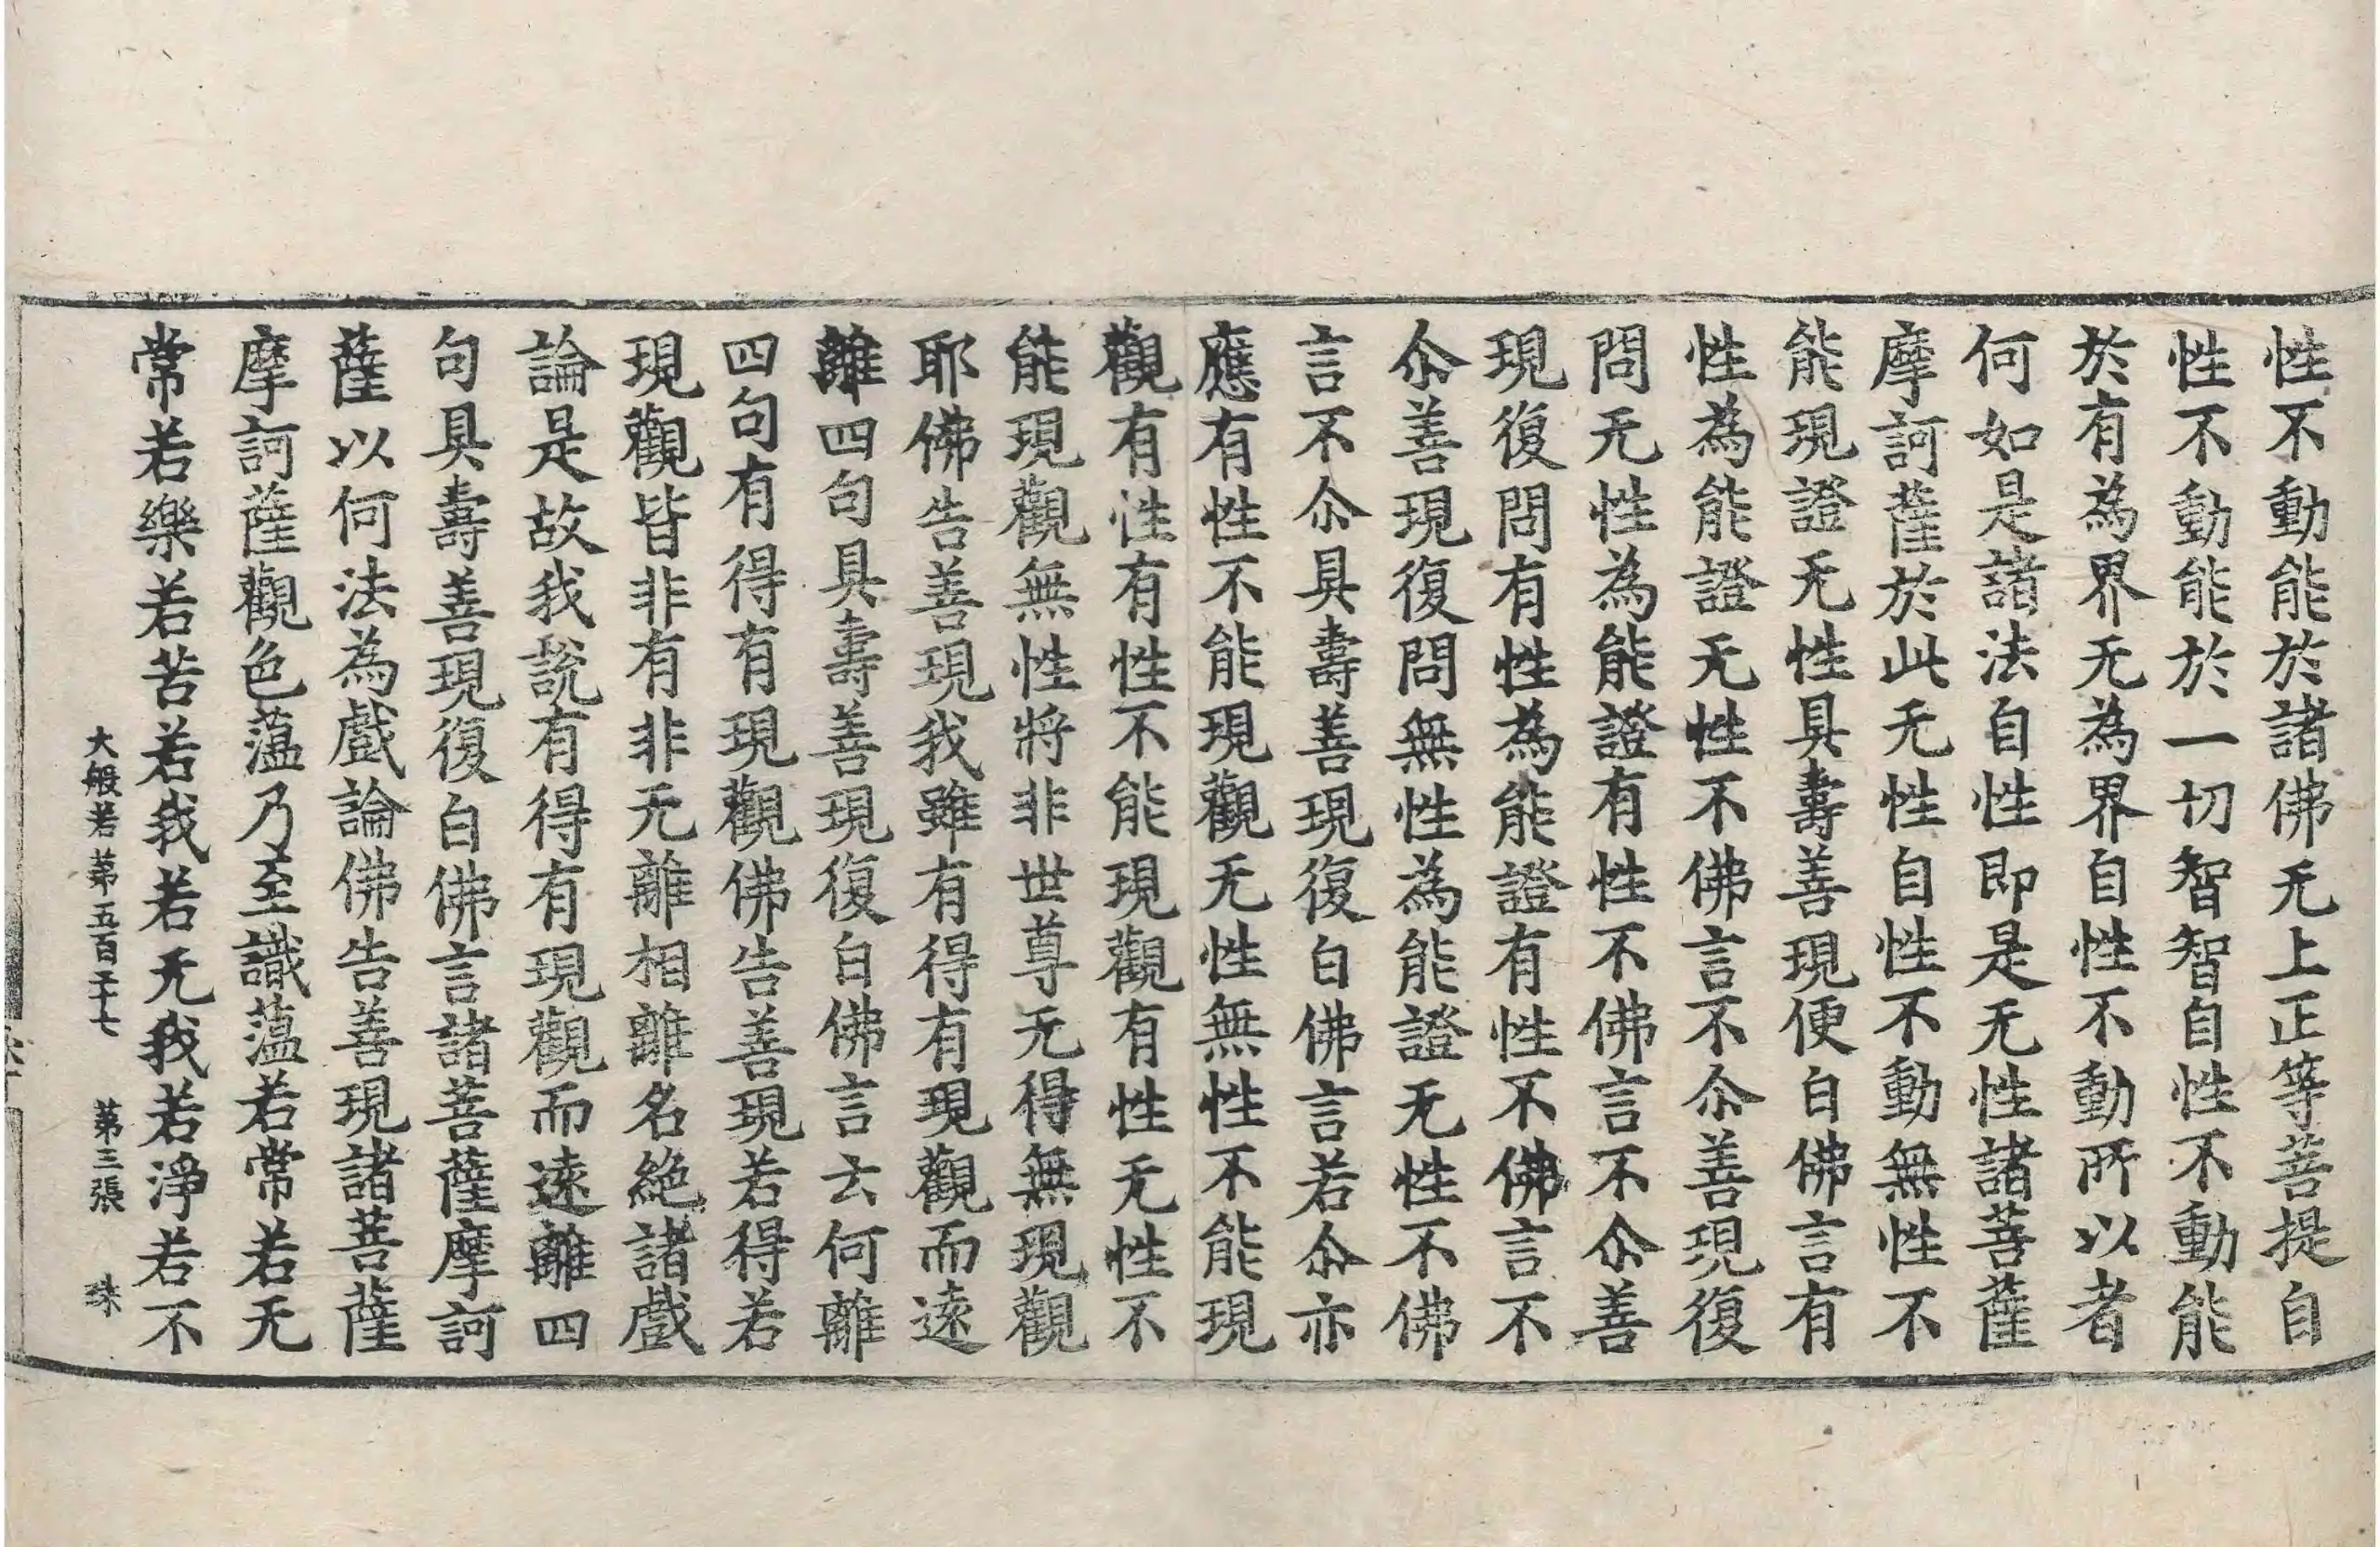 性不動能於諸佛无上正等菩提自
性不動能於一切智智自性不動能
於有為界无為界自性不動所以者
何如是諸法自性即是无性諸菩薩
摩訶薩於此无性自性不動無性不
能現證无性具壽善現便白佛言有
性為能證无性不佛言不尒善現復
問无性為能證有性不佛言不尒善
現復問有性為能證有性不佛言不
尒善現復問無性為能證无性不佛
言不尒具壽善現復白佛言若尒亦
應有性不能現觀无性無性不能現
觀有性有性不能現觀有性无性不
能現觀無性將非世尊无得無現觀
耶佛告善現我雖有得有現觀而遠
離四句具壽善現復白佛言云何離
四句有得有現觀佛告善現若得若
現觀皆非有非无離相離名絶諸戲
論是故我說有得有現觀而遠離四
句具壽善現復白佛言諸菩薩摩訶
薩以何法為戲論佛告善現諸菩薩
摩訶薩觀色蕰乃至識蕰若常若无
常若樂若苦若我若无我若淨若不
大般若第五百二十七 第三張 珠